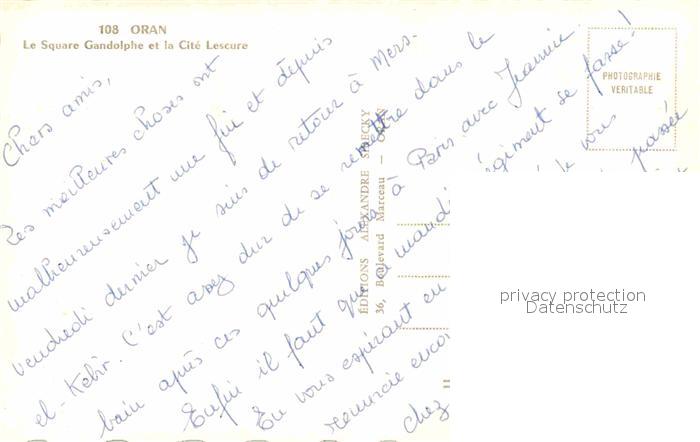 108 ORAN
Le Square Gandolphe et la Cité Lescure
PHOTOGRAPHIE
VERITABLE
ÉDITIONS ALEXANDRE
36, Boulevard Marceau - ORAN
Chers amis,
Les meilleures choses ont
malheureusement une fin et depuis
vendredi dernier je suis de retour à Mers-
el-Kébir. C'est assez dur de se remettre dans le
bain après ces quelques jours à Paris avec Jeannie.
Enfin il faut que ça régiment se fasse!
En vous espérant en de vous
remercie encore passée
chez
privacy protection
Datenschutz